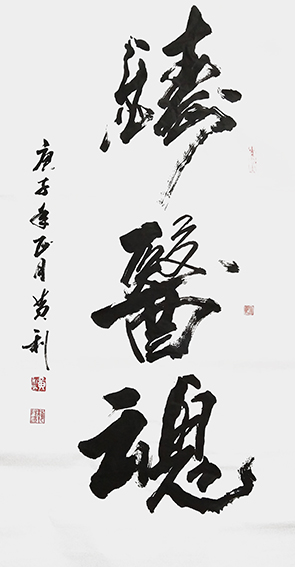 鑄醫魂
庚子年正月黄利